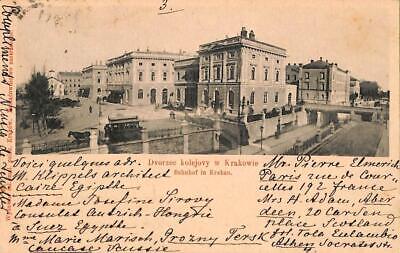 3.
Dworzec kolejowy w Krakowie
Bahnhof in Krakau.
Compliment
Voici quelques adr.
W. Klippels architect
Caire Egipthe
Madame Josefine Sirovy
Consulat Autrich-Hongrie
à Suez Egypthe
Mme Marie Marisch, Grozny Tersk
Caucase Russie
Mr. Pierre Elmerich
Paris rue de Cour-
celles 192 france
Mrs H. Adam, Aber
deen 20 Carden
place Scotland
Athen Socratesstr